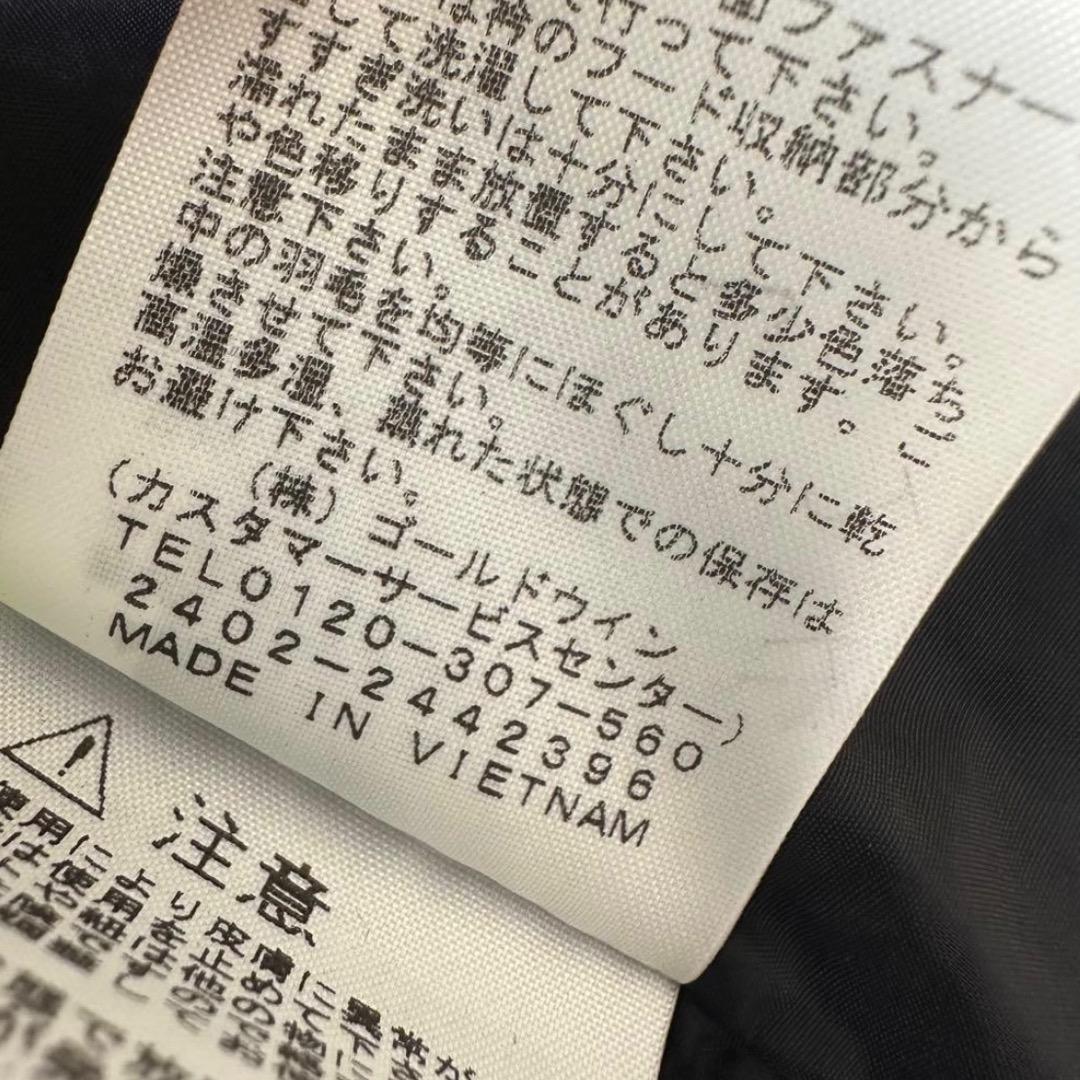 面ファスナー
行って下さい。
は衿のフード収納部分から
て洗濯して下さい。
すすぎ洗いは十分にして下さい。
濡れたまま放置すると多少色落ち
や色移りすることがあります。ご
注意下さい。
中の羽毛を均等にほぐし十分に乾
燥させて下さい。
高温多湿、濡れた状態での保存は
お避け下さい。
(株)ゴールドウイン
(カスタマーサービスセンター)
TEL0120-307-560
2402-2442396
MADE IN VIETNAM
注意
使用により皮膚に異常が